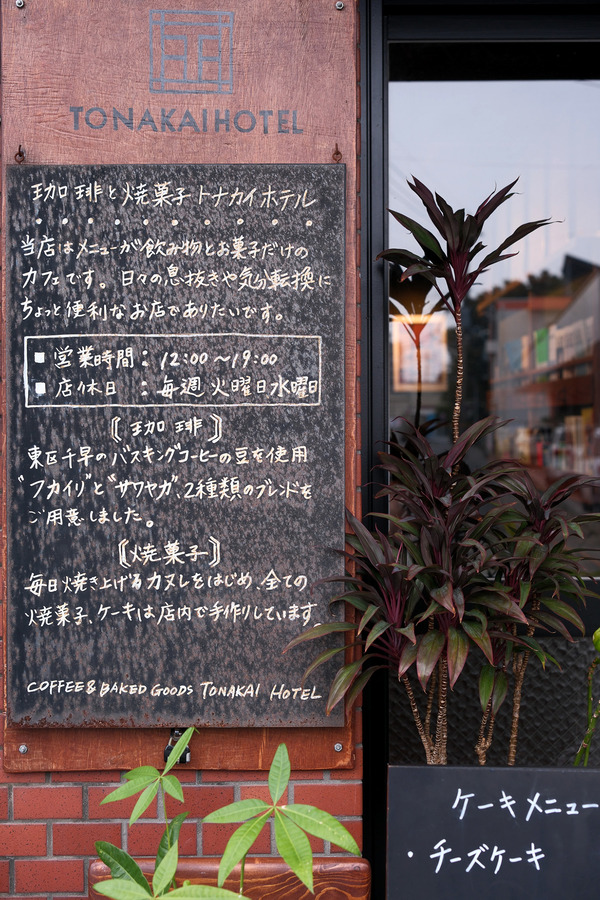 TONAKAI HOTEL
珈琲と焼菓子 トナカイホテル
当店はメニューが飲み物とお菓子だけの
カフェです。日々の息抜きや気分転換に
ちょっと便利なお店でありたいです。
■ 営業時間：12:00〜19:00
■ 店休日：毎週火曜日水曜日
〘珈琲〙
東区千早のバスキングコーヒーの豆を使用
"フカイリ"と"サワヤカ"、2種類のブレンドを
ご用意しました。
〘焼菓子〙
毎日焼き上げるカヌレをはじめ、全ての
焼菓子、ケーキは店内で手作りしています。
COFFEE & BAKED GOODS TONAKAI HOTEL
ケーキメニュー
・チーズケーキ